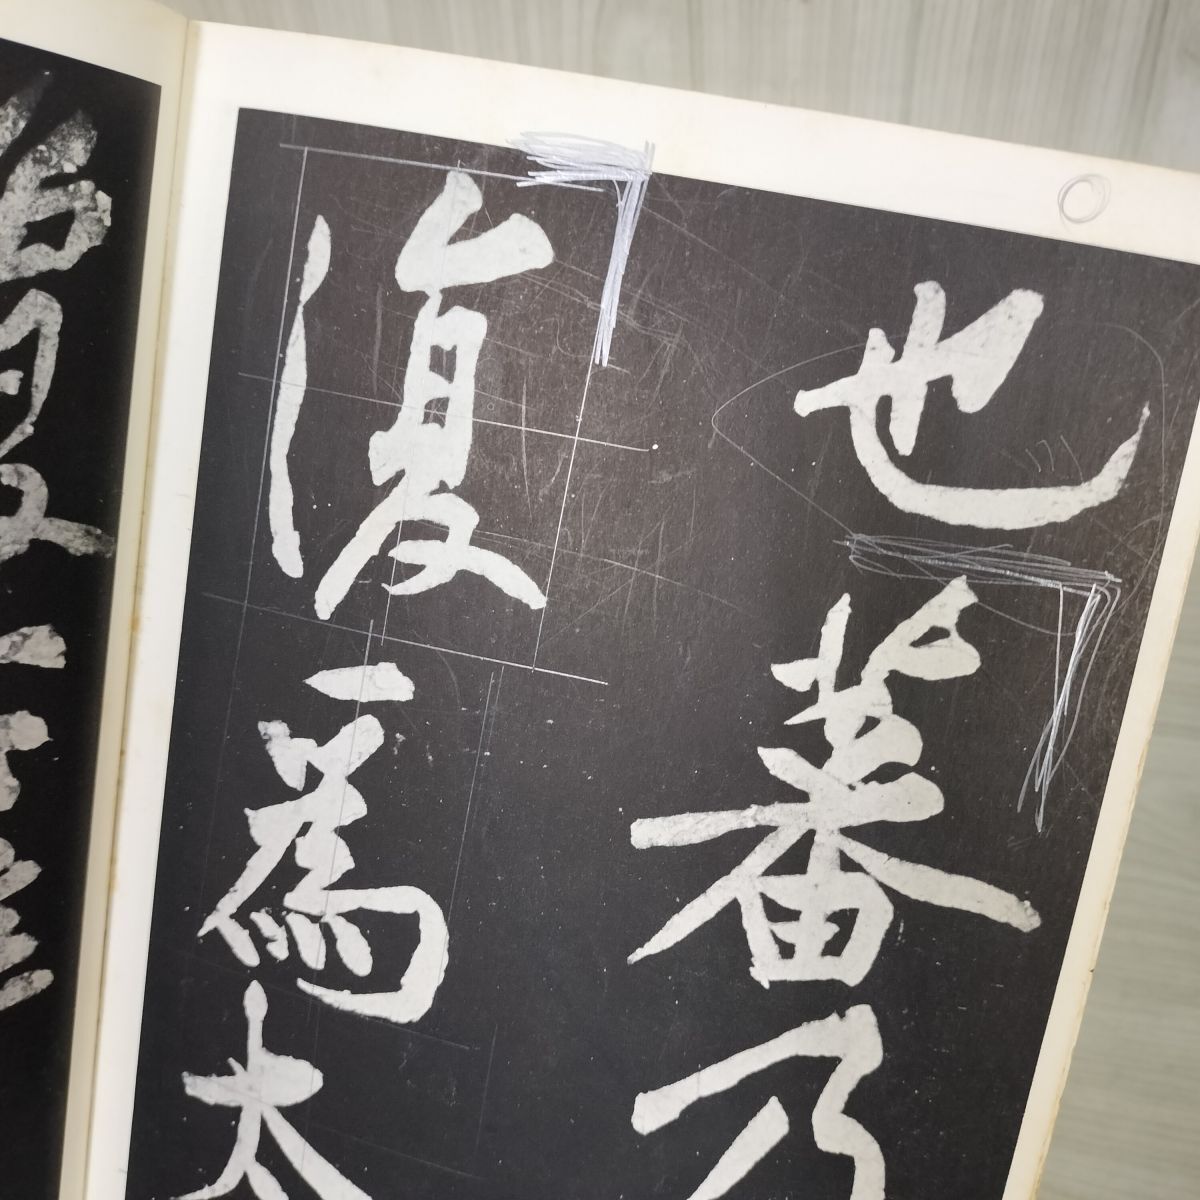 也蕃乃
復爲太